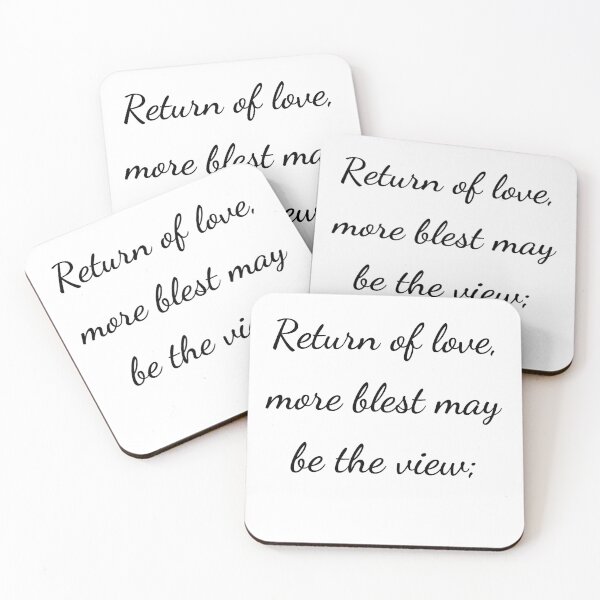 Return of love,
more blest ma
ew
Return of love,
more blest may
be the view;
Return of love,
more blest may
be the vi
Return of love,
more blest may
be the view;